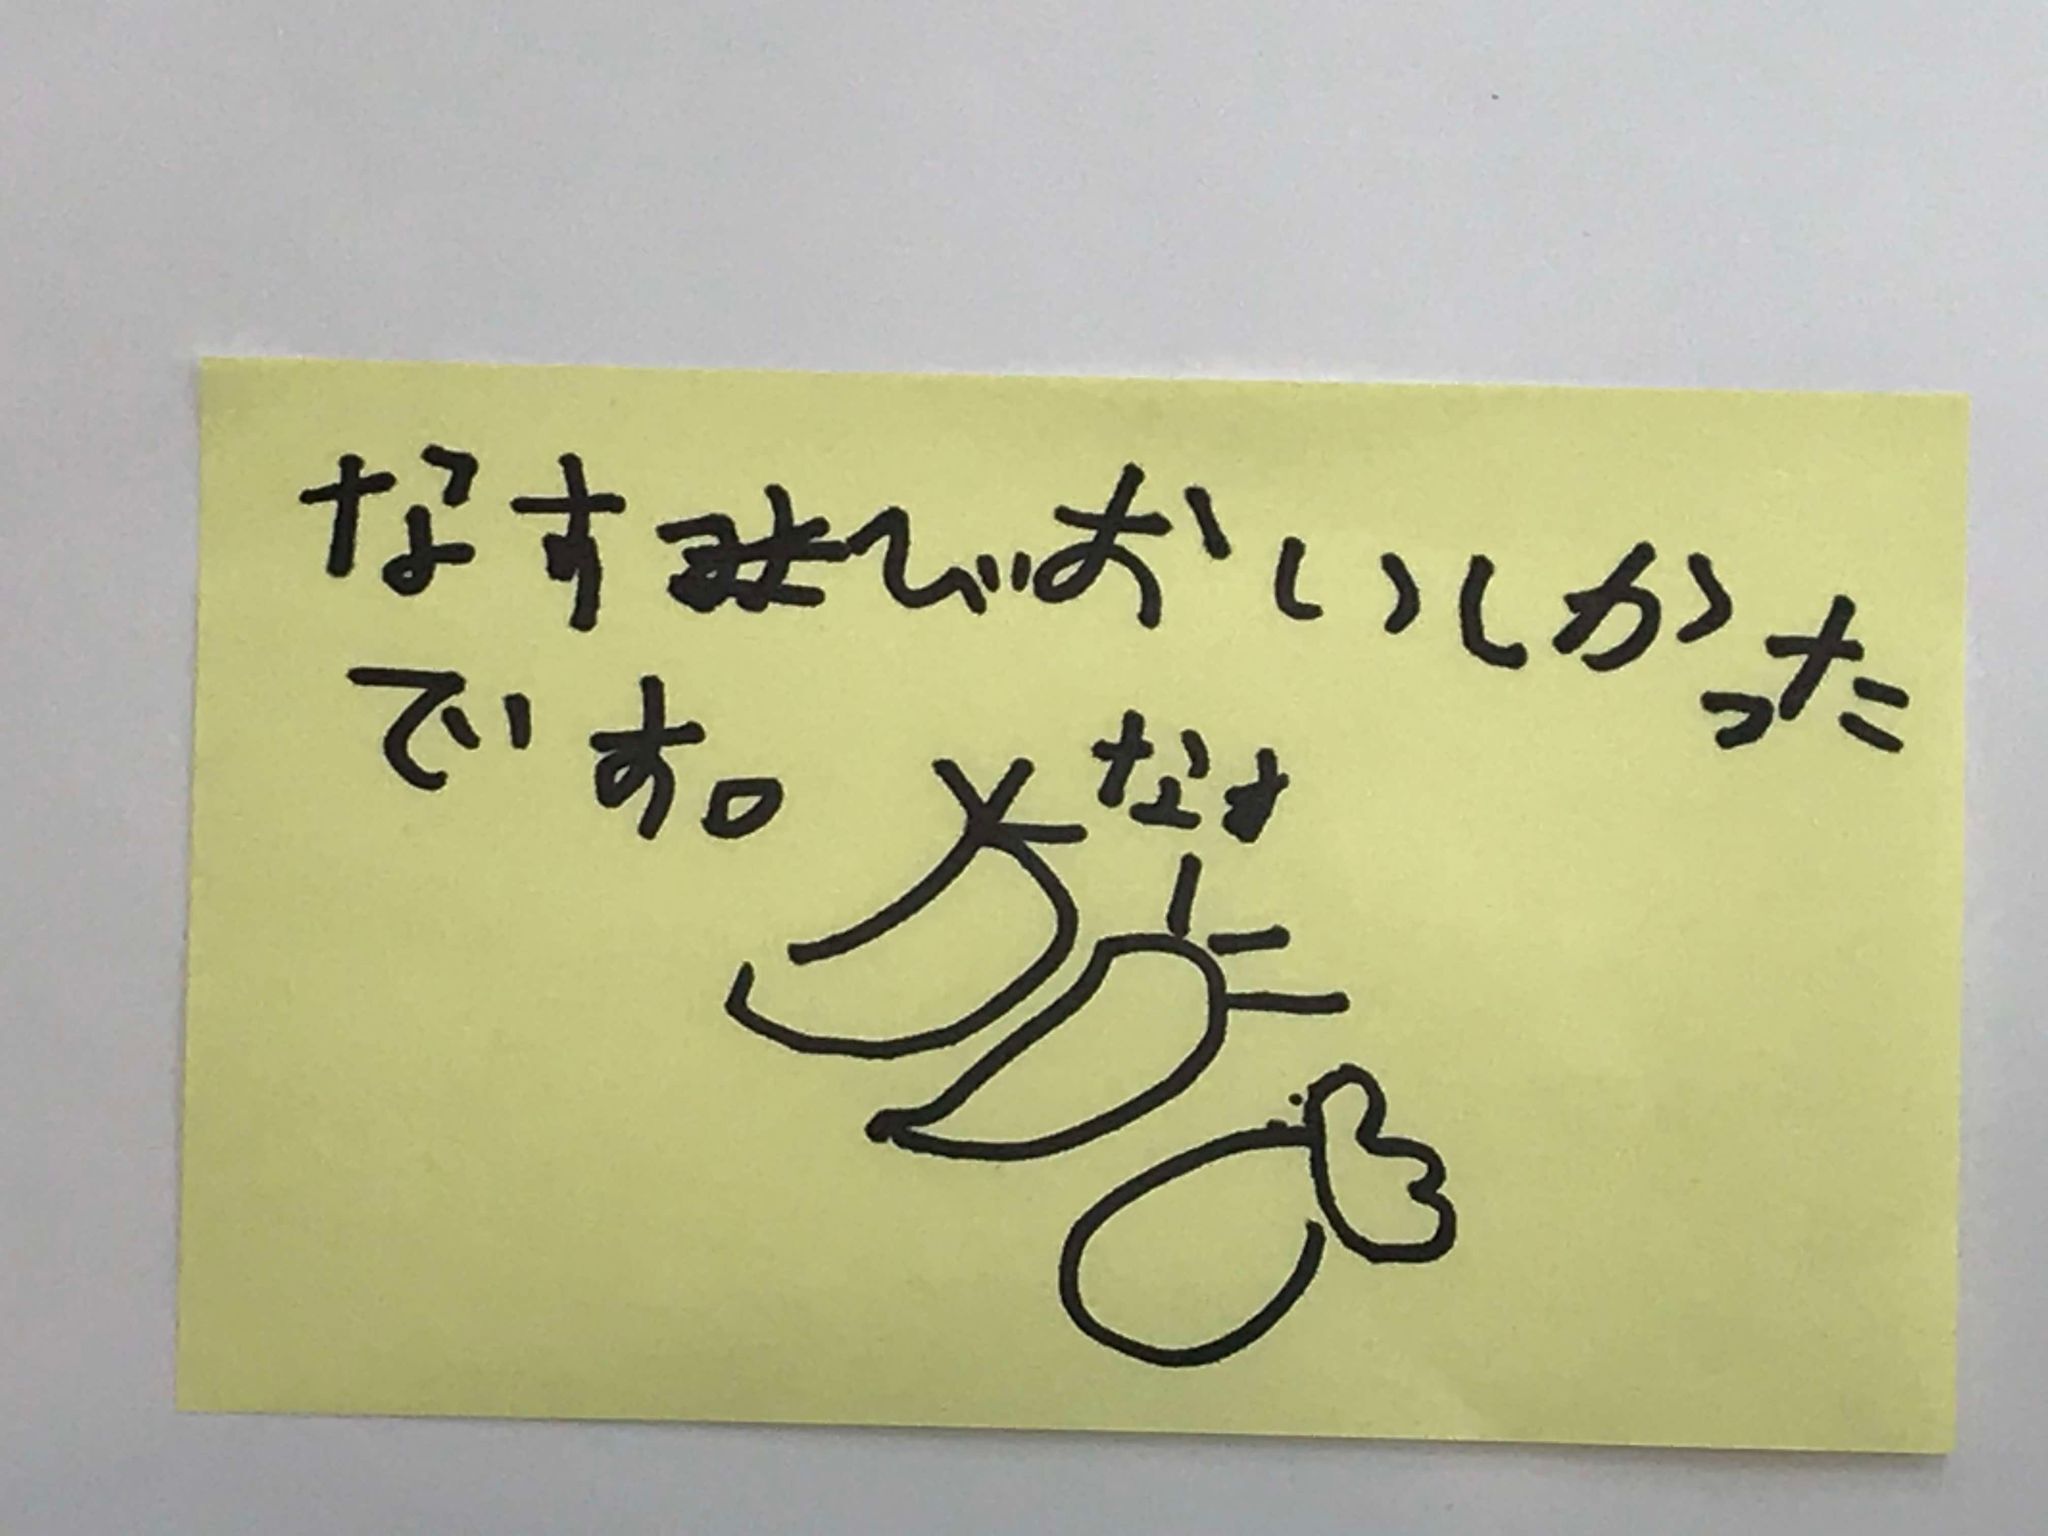 なすびおいしかった
です。
なす